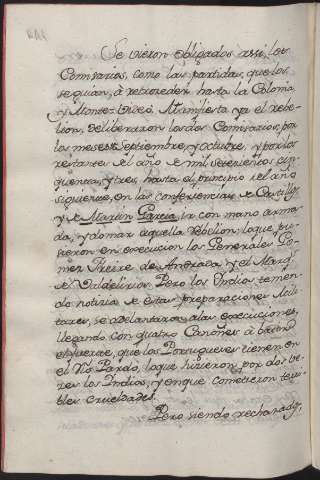 Se vieron obligados assi, los
Comisarios, como las partidas, que los
seguian, á retroceder hasta la Colonia
y Monte-Video. Manifiesta ya el Rebe-
lion, deliberaron los dos Comisarios, por
los meses de Septiembre, y Octubre, y por los
restantes del año de mil setecientos cin-
quenta, y tres, hasta el principio del año
siguiente, en las conferencias de Castillos
y de Martin Garcia, ir con mano arma-
da, y domar aquella Rebelion; lo que pu-
sieron en execucion los Generales Go-
mez Freire de Andrada y el Marq.
de Valdelirios. Pero los Indios tenien-
do noticia de estas preparaciones Mili-
tares, se adelantaron a las execuciones,
llegando con quatro Cañones á batir
el fuerte, que los Portugueses tienen en
el Rio Pardo, lo que hicieron por dos ve-
zes los Indios, y en que cometieron terri-
bles crueldades.
Pero siendo rechazados,